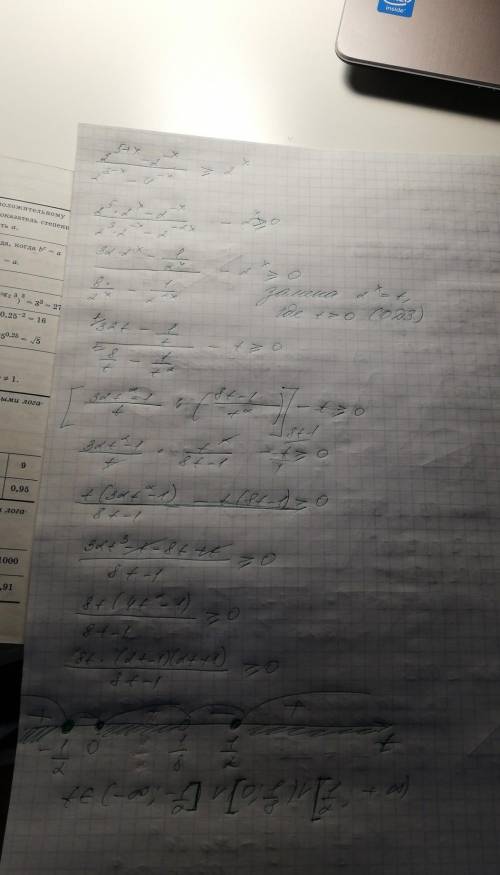 inside
положительному
показатель степени
ть a.
да, когда bᶜ = a
= a.
= 3³ = 27
0,25⁻² = 16
5^0,25 = √5
≠ 1.
ыми лога-
9
0,95
лога-
1000
,91
(2^(5+x) - 2^(-x)) / (2^(3-x) - 4^(-x)) ≥ 2^x
(2^5·2^x - 2^(-x)) / (2^3·2^(-x) - 2^(-2x)) - 2^x ≥ 0
(32·2^x - 1/2^x) / (8/2^x - 1/2^(2x)) - 2^x ≥ 0
замена 2^x = t,
где t > 0 (ОДЗ)
(32t - 1/t) / (8/t - 1/t²) - t ≥ 0
[(32t² - 1)/t : ((8t - 1)/t²)] - t ≥ 0
(32t² - 1)/t · t²/(8t - 1) - t/1 ≥ 0
8t-1
(t(32t² - 1) - t(8t - 1))/(8t - 1) ≥ 0
(32t³ - t - 8t + t)/(8t - 1) ≥ 0
8t(4t² - 1)/(8t - 1) ≥ 0
8t·(2t-1)(2t+1)/(8t - 1) ≥ 0
+ - + - + t
-1/2 0 1/8 1/2